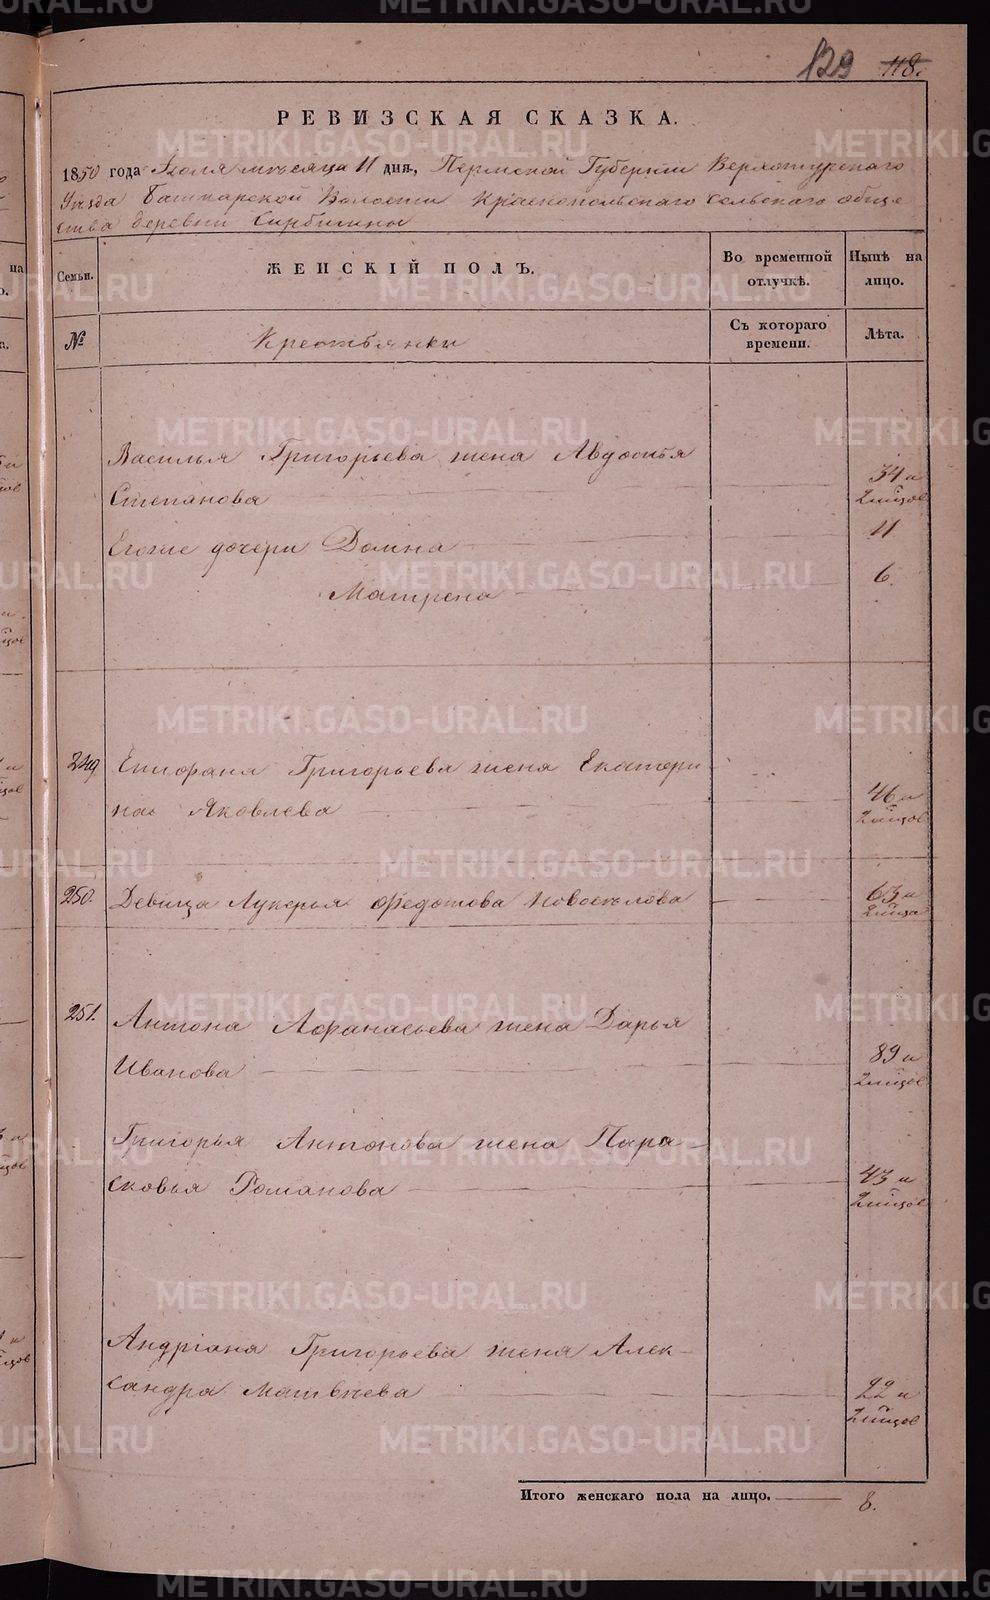 129 118.
РЕВИЗСКАЯ СКАЗКА.
1850 года Июля месяца 11 дня, Пермской Губернии Верхотурского
Уезда Башкарской Волости Краснопольского сельского обще
ства деревни Сирбишины
Семьи. ЖЕНСКІЙ ПОЛЪ. Во временной отлучкѣ. Нынѣ на лицо.
№ Крестьянки Съ котораго времени. Лѣта.
Василья Григорьева жена Авдотья
Степанова 34 и
Егоже дочери Домна 11
Матрена 6.
249 Епифана Григорьева жена Екатери
на Яковлева 46 и
250. Девица Лукерья Федотова Новоселова 63 и
251. Антона Афанасьева жена Дарья
Иванова 89 и
Григорья Антонова жена Пара
сковья Романова 43 и
Андріана Григорьева жена Алек
сандра Матвѣева 22 и
Итого женскаго пола на лицо. 8.
METRIKI.GASO-URAL.RU